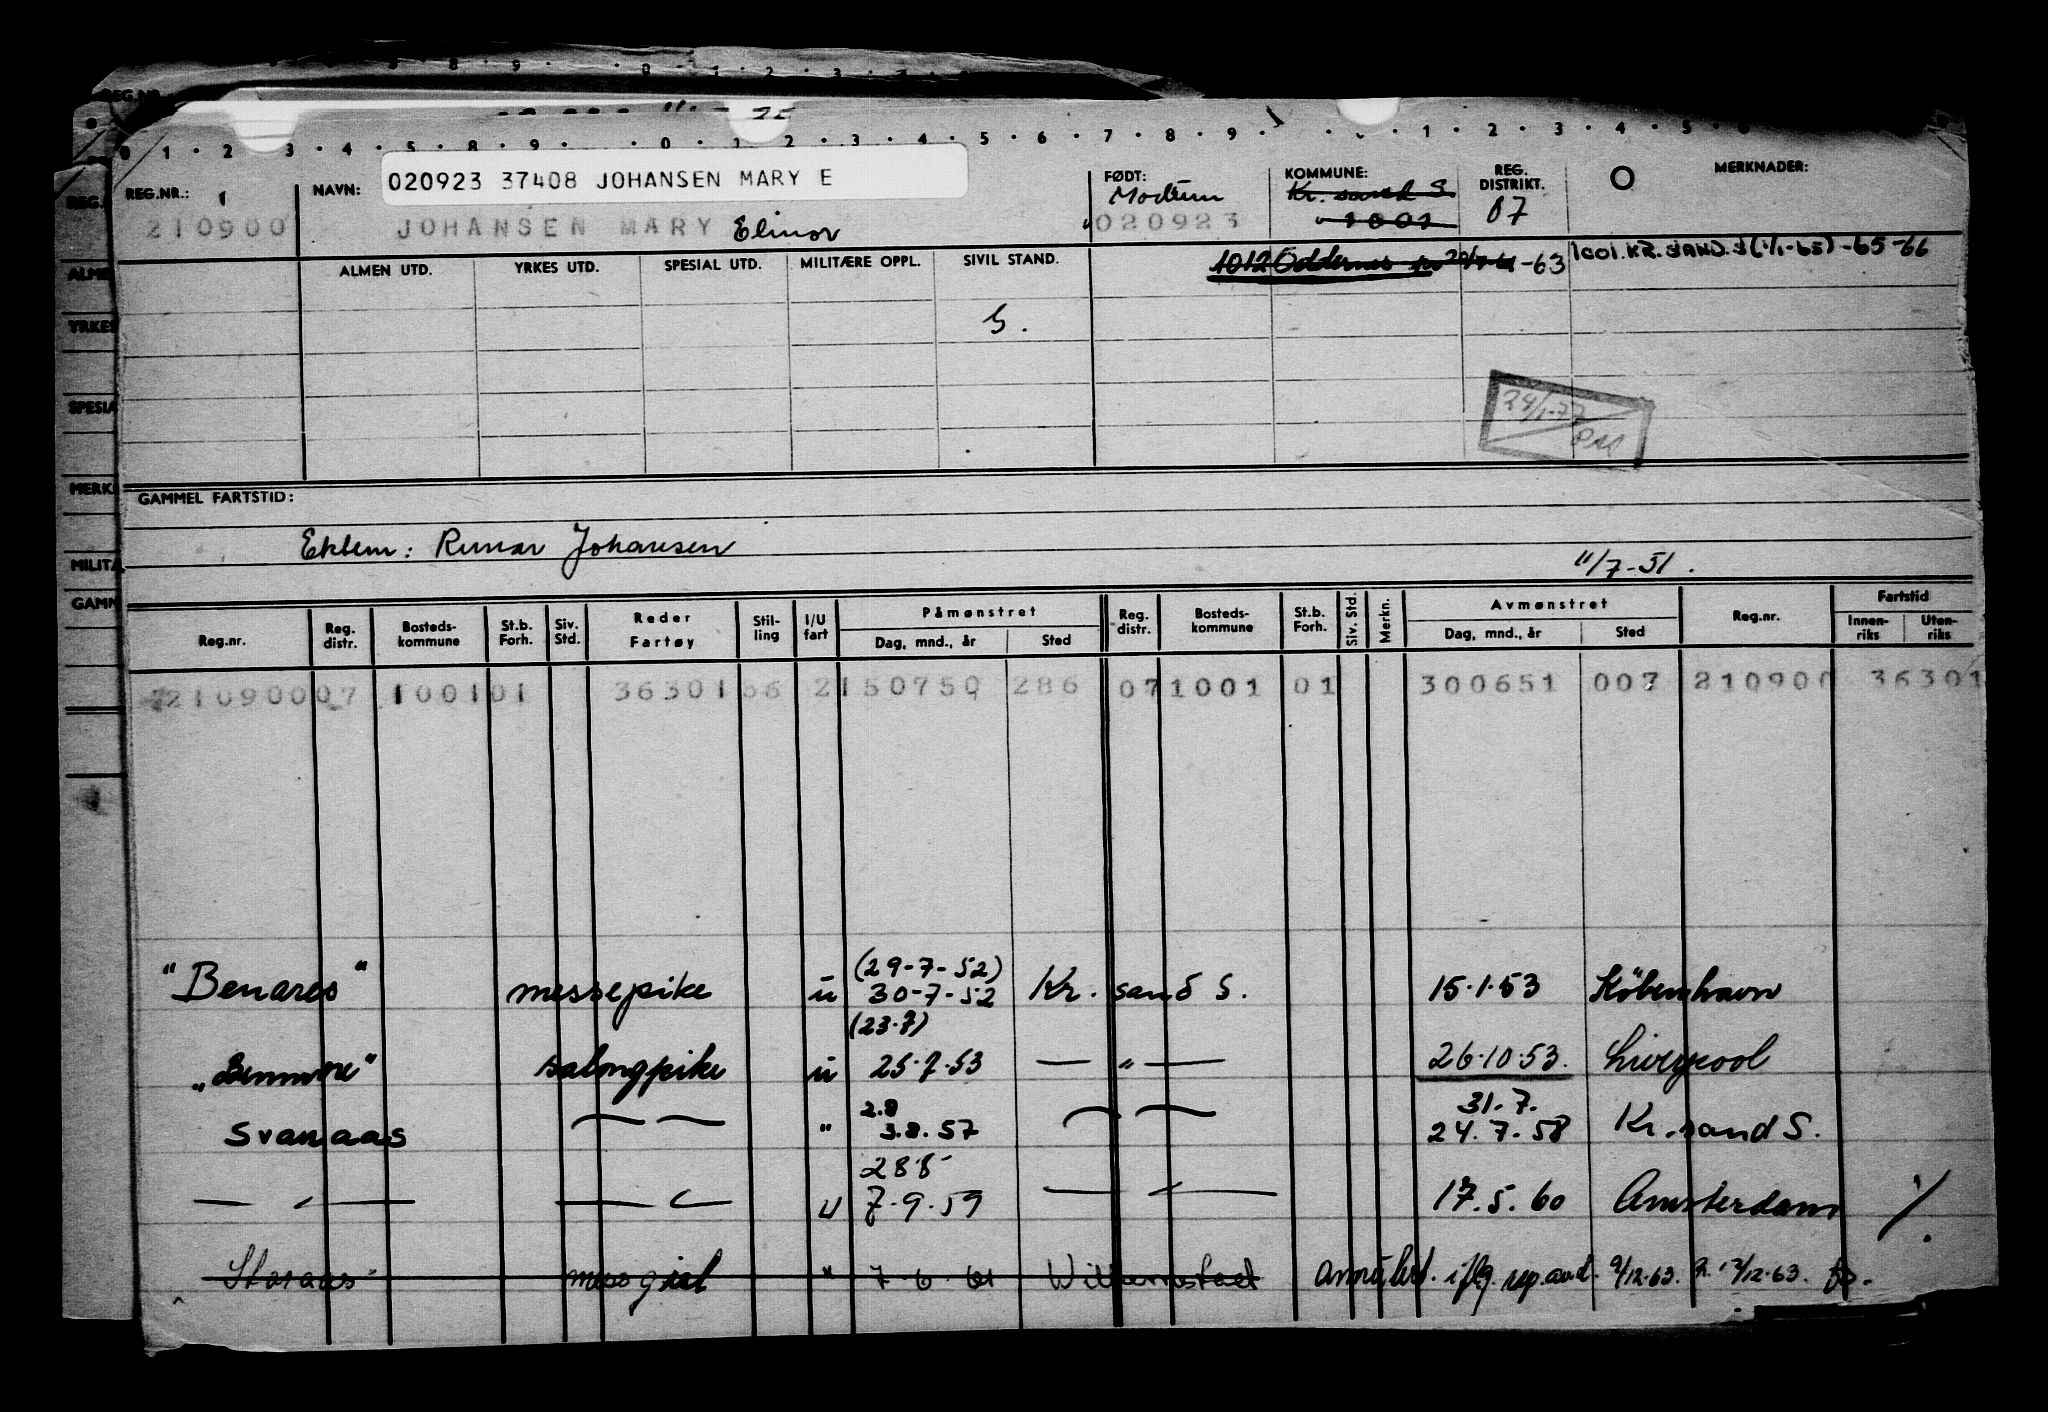 0 1 · 2 · 3 · 4 · 5 · · 8 · 9 · · 0 · 1 2 · 3 · 4 · 5 · 6 · 7 · 8 · 9 · · 1 · 2 · 3 · 4 · 5
REG.NR.: 1 NAVN: 020923 37408 JOHANSEN MARY E FØDT: KOMMUNE: REG. DISTRIKT. O MERKNADER:
Modum Kr. sand S 07
210900 JOHANSEN MARY Elinor 020923 1001
ALMEN UTD. YRKES UTD. SPESIAL UTD. MILITÆRE OPPL. SIVIL STAND. 1012 Oddernes -63 1001.KR.SAND.S (1/1-65) -65-66
G.
24/1-77
GAMMEL FARTSTID:
Ektem: Runar Johansen
11/7-51.
Reg.nr. Reg. distr. Bosteds-kommune St.b. Forh. Siv. Std. Reder Fartøy Stil-ling I/U fart Påmønstret Dag, mnd., år Sted Reg. distr. Bosteds-kommune St.b. Forh. Siv. Std. Merkn. Avmønstret Dag, mnd., år Sted Reg.nr. Fartstid Innen-riks Uten-riks
210900 07 1001 01 36301 56 2 150750 286 07 1001 01 300651 007 210900 36301
(29-7-52)
"Benares" messepike u 30-7-52 Kr. sand S. 15.1.53 København
(23.7)
"Benmore" salongpike u 25.7.53 — " — 26.10.53. Liverpool
2.8 31.7.
Svanaas — — " 3.8.57 — — 24.7.58 Kr.sand S.
28.8
— " — — " — u 7-9-59 — " — 17.5.60 Amsterdam
Storaas messgirl " 7-6-61 Willemstad Annullert. iflg. rep.avd. 9/12.63.